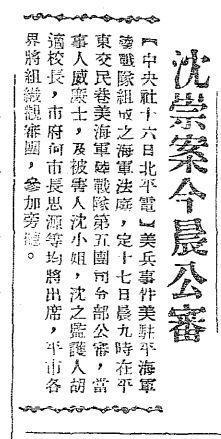 沈崇案今晨公審
【中央社十六日北平電】美兵事件美駐平海軍
陸戰隊組成之海軍法庭，定十七日晨九時在平
東交民巷美海軍陸戰隊第五團司令部公審，當
事人威廉士，及被害人沈小姐，沈之監護人胡
適校長，市府何市長思源等均將出席，平市各
界將組織觀審團，參加旁聽。